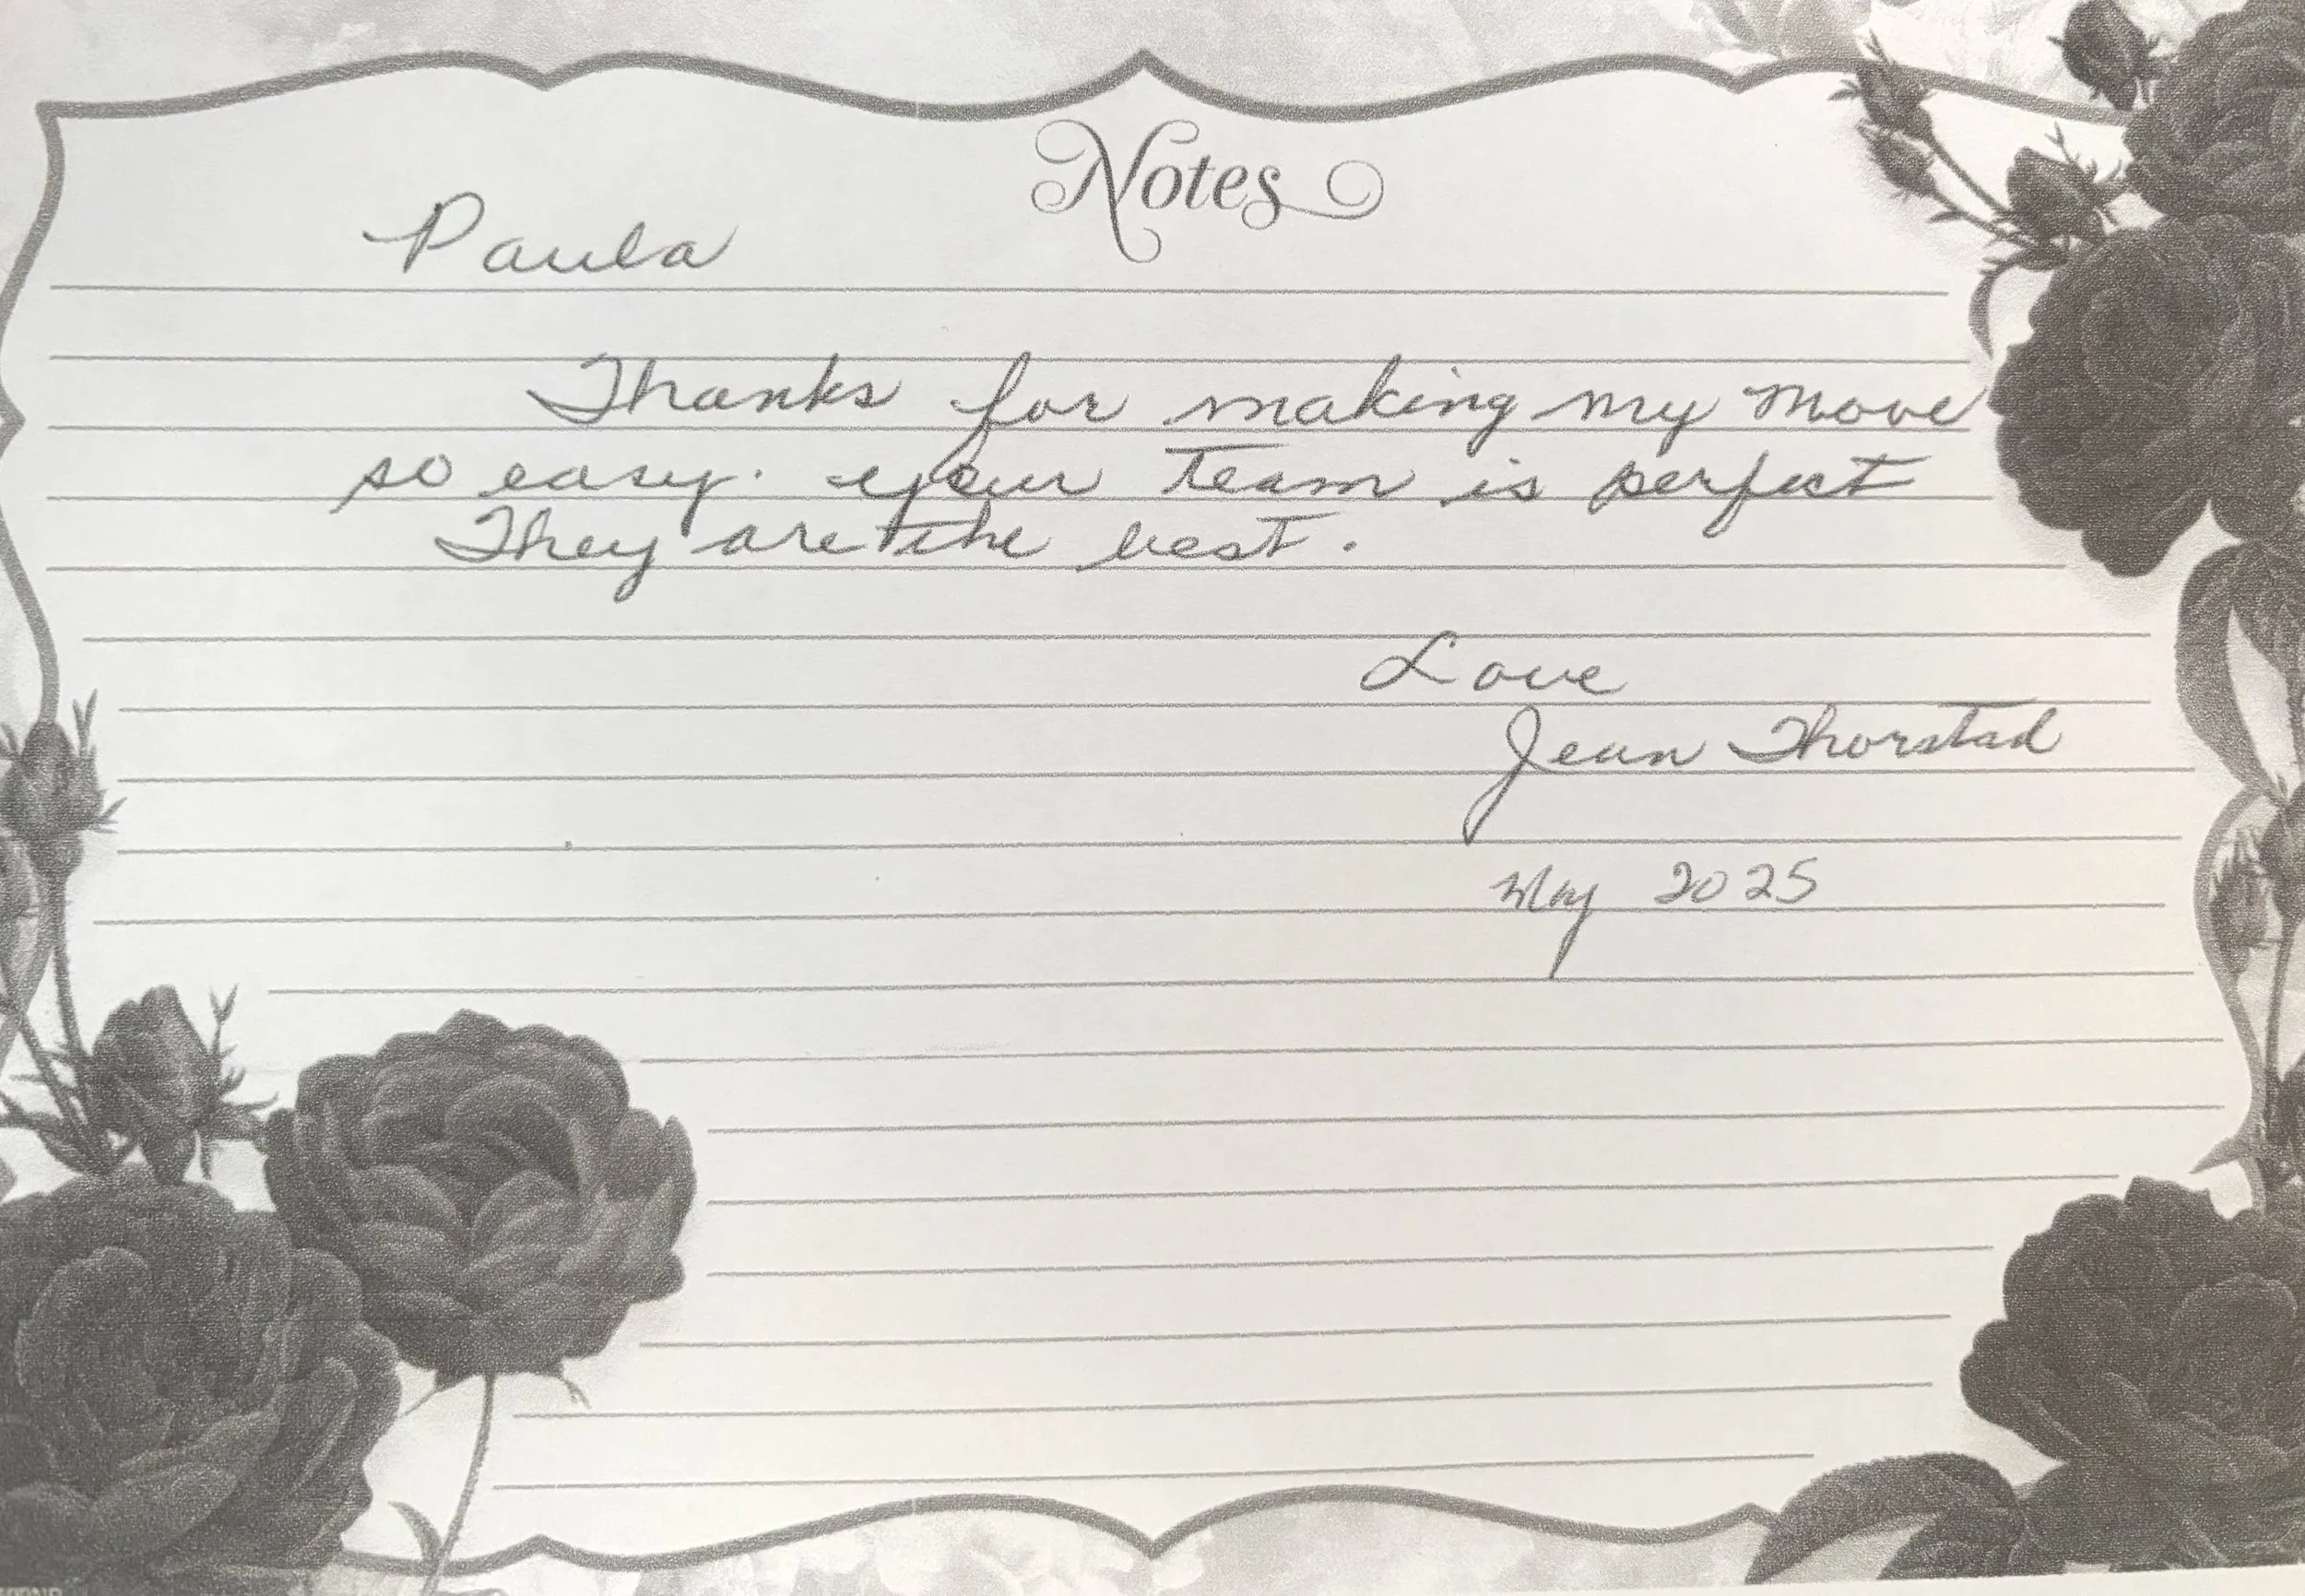 Notes
Paula
Thanks for making my move
so easy. your team is perfect
They are the best.
Love
Jean Thorstad
May 2025